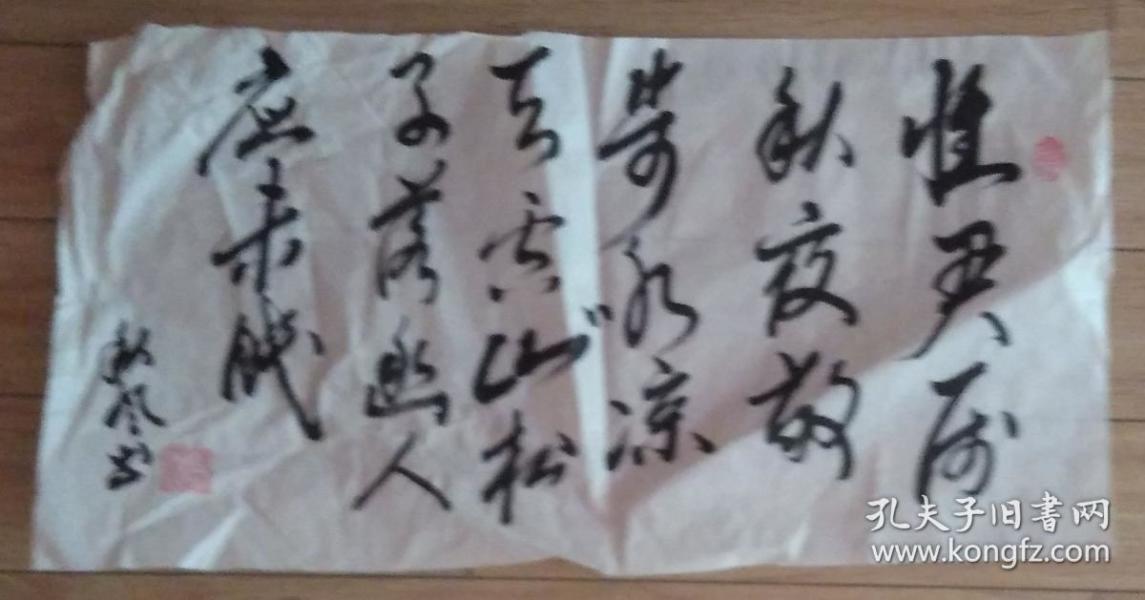 怀君属
秋夜散
步咏凉
天空山松
子落幽人
应未眠
秋风
孔夫子旧書网
www.kongfz.com